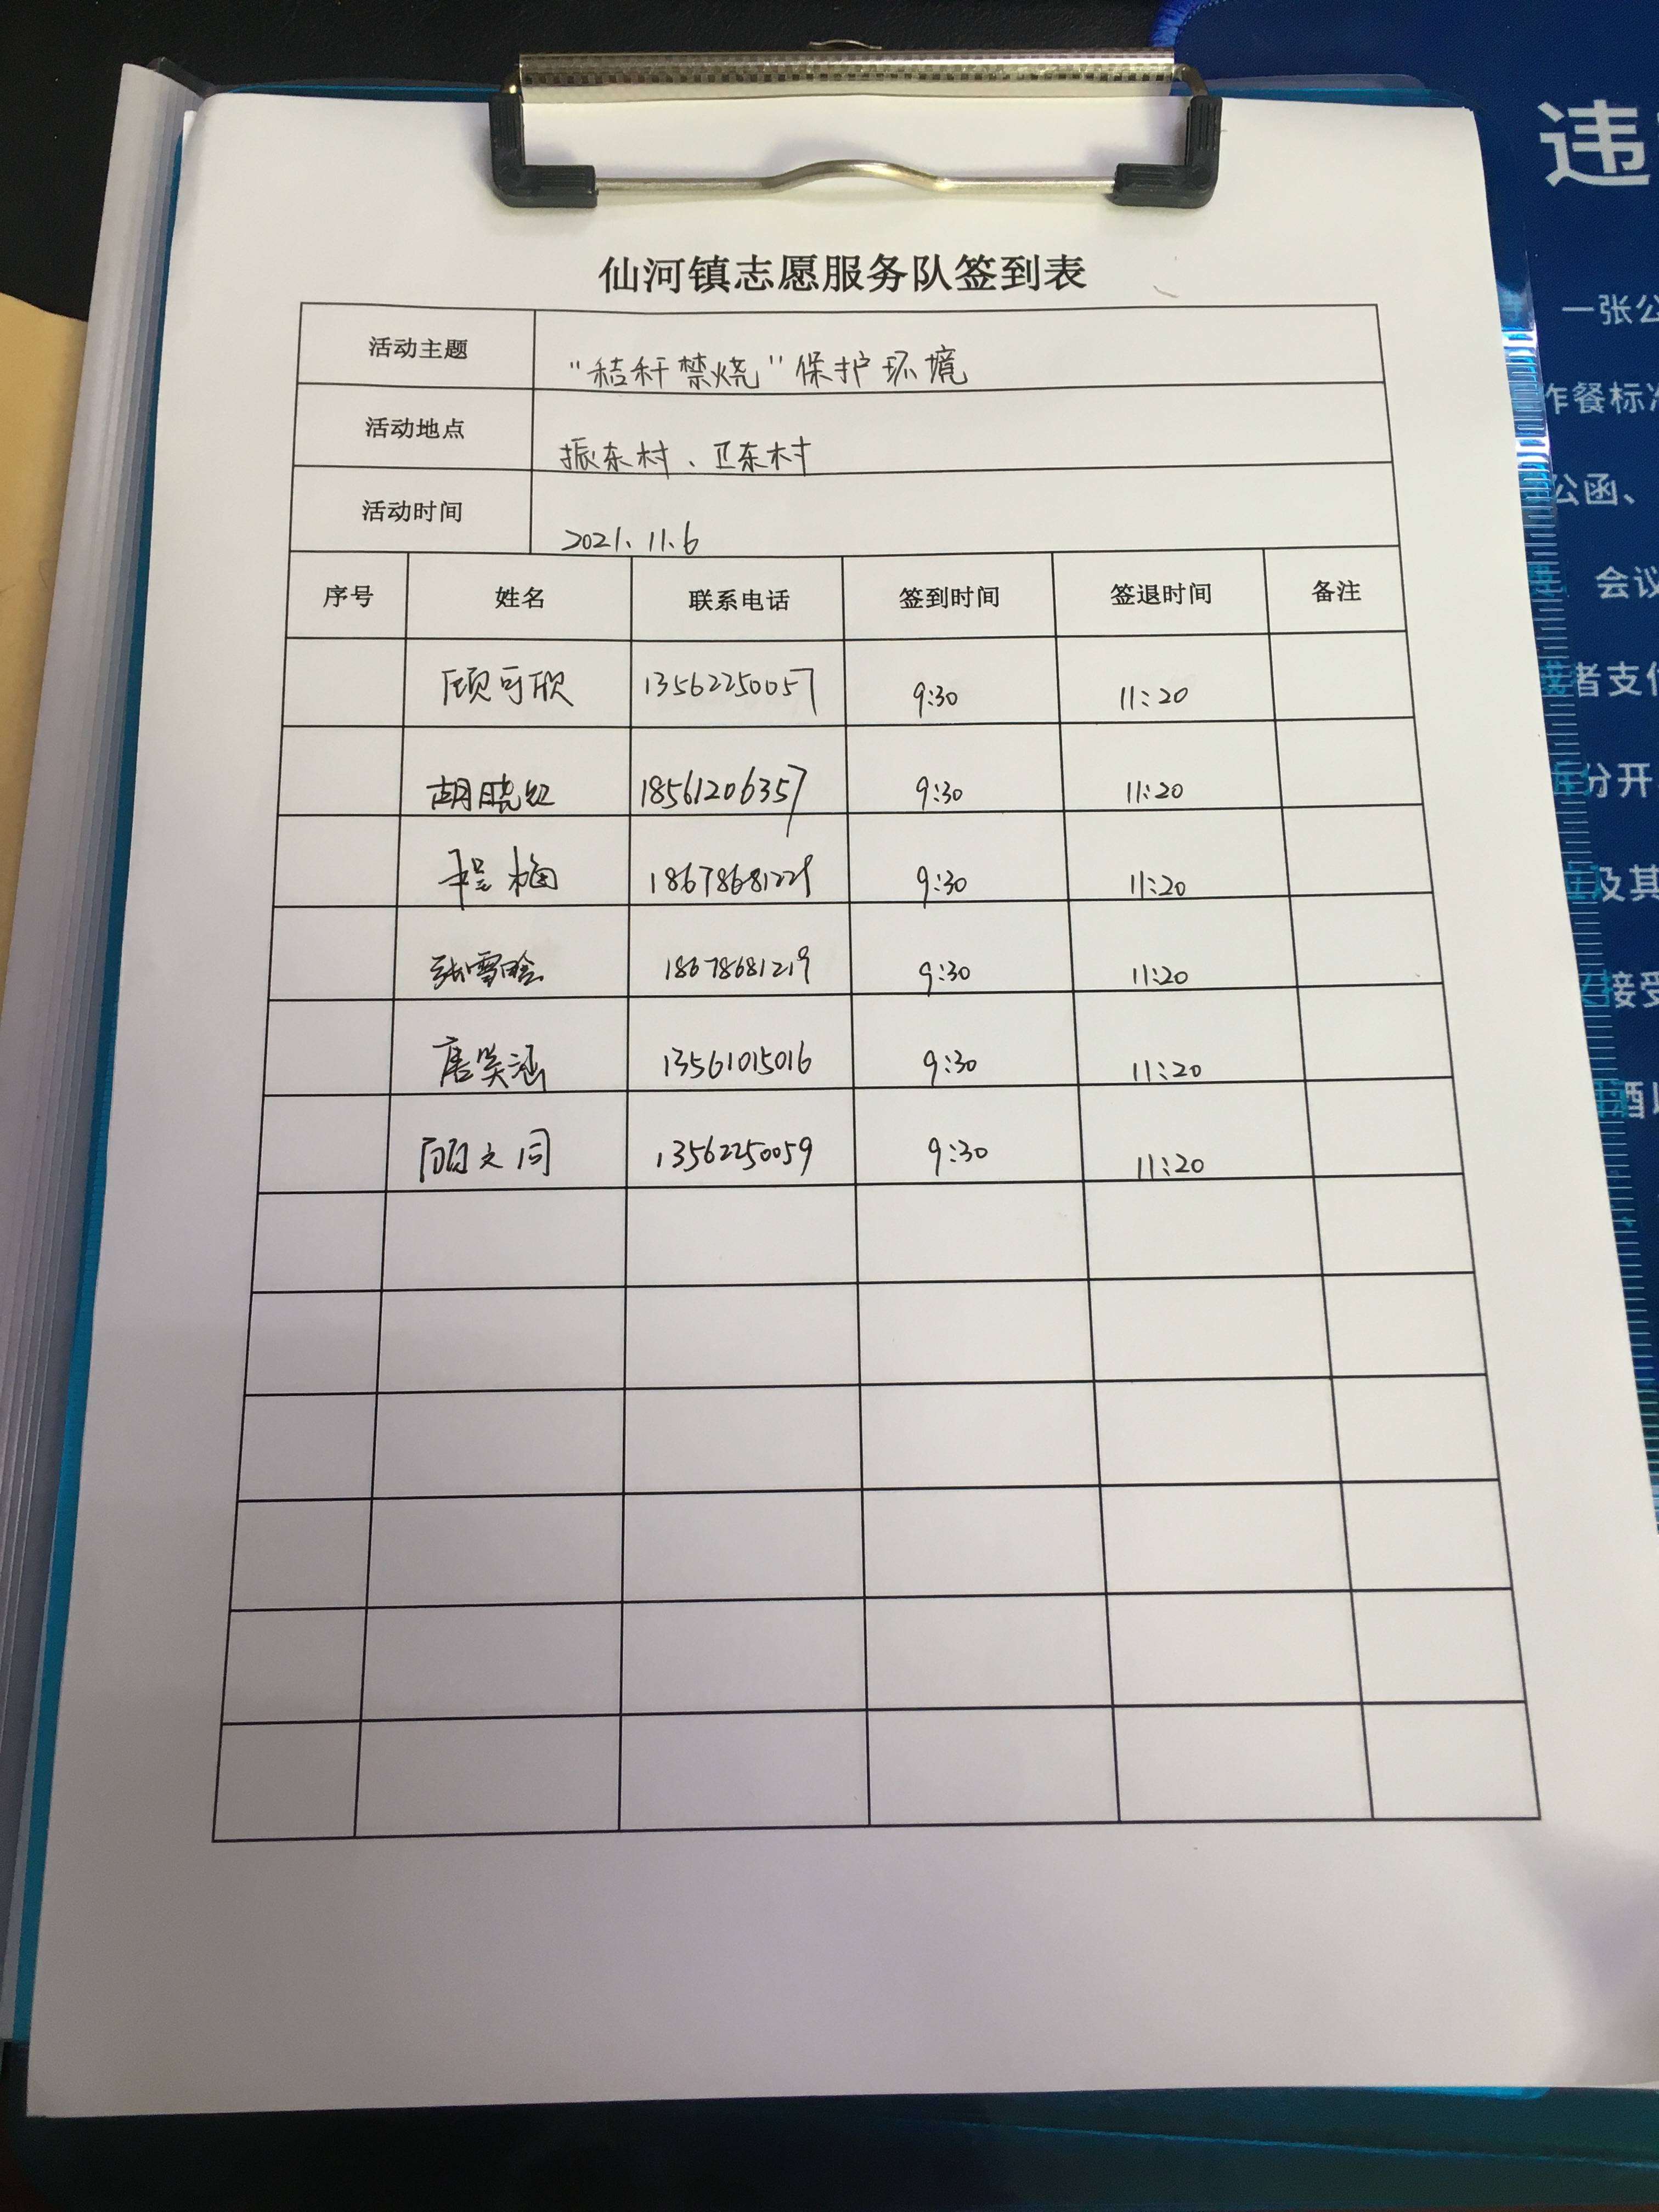 仙河镇志愿服务队签到表
活动主题 "秸秆禁烧"保护环境
活动地点 振东村、卫东村
活动时间 2021.11.6
序号 姓名 联系电话 签到时间 签退时间 备注
顾可欣 13562250057 9:30 11:20
胡晓红 18561206357 9:30 11:20
程梅 18678681229 9:30 11:20
张雪晗 18678681219 9:30 11:20
唐笑涵 13561015016 9:30 11:20
顾文同 13562250059 9:30 11:20
违
一张公
作餐标准
公函、
会议
者支付
分开
及其
接受
酒